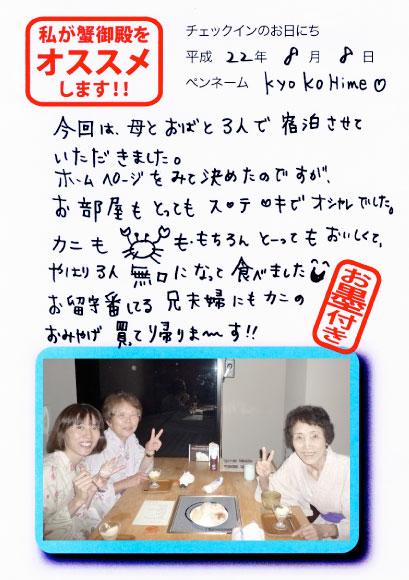 私が蟹御殿を
オススメ
します!!
チェックインのお日にち
平成 22年 8月 8日
ペンネーム kyokoHime♡
今回は、母とおばと3人で宿泊させて
いただきました。
ホームページをみて決めたのですが、
お部屋もとってもス♥テ♥キでオシャレでした。
カニも も・もちろんとーってもおいしくて、
やはり3人無口になって食べました
お留守番してる兄夫婦にもカニの
おみやげ買って帰りま〜す!!
お墨付き